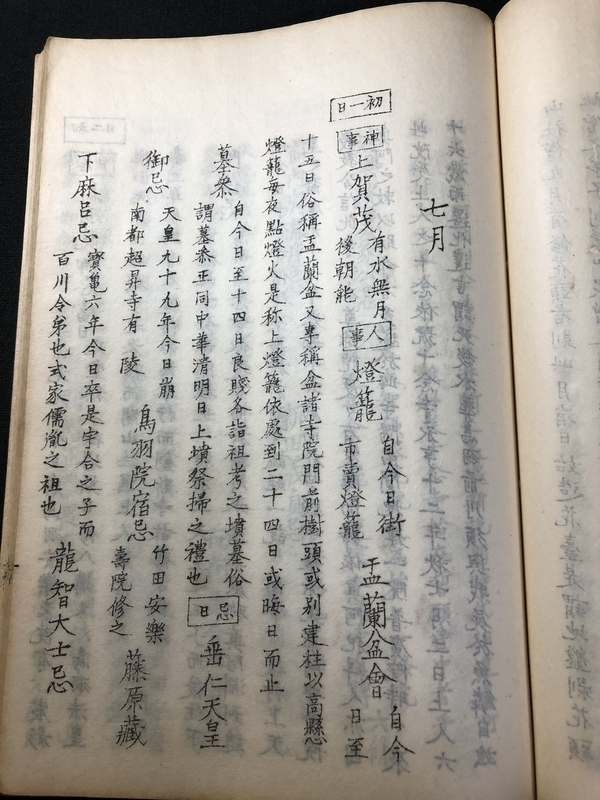 七月
初一日
神事 上賀茂 有水無月後朝能 人事 燈籠 自今日街市賣燈籠 盂蘭盆會 自今日至
十五日俗稱盂蘭盆又專稱盆諸寺院門前樹頭或別建柱以高懸
燈籠每夜點燈火是称上燈籠依處到二十四日或晦日而止
墓參 自今日至十四日良賤各詣祖考之墳墓俗謂墓参正同中華清明日上墳祭掃之禮也 忌日 垂仁天皇
御忌 天皇九十九年今日崩南都超昇寺有陵 鳥羽院宿忌 竹田安樂壽院修之 藤原藏
下麻呂忌 寶亀六年今日卒是宇合之子而百川令弟也式家儒胤之祖也 龍智大士忌